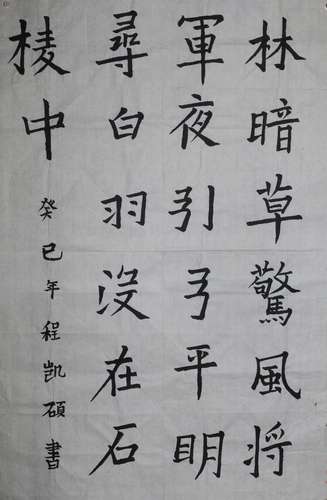 林暗草驚風将
軍夜引弓平明
尋白羽沒在石
棱中
癸巳年程凱碩書